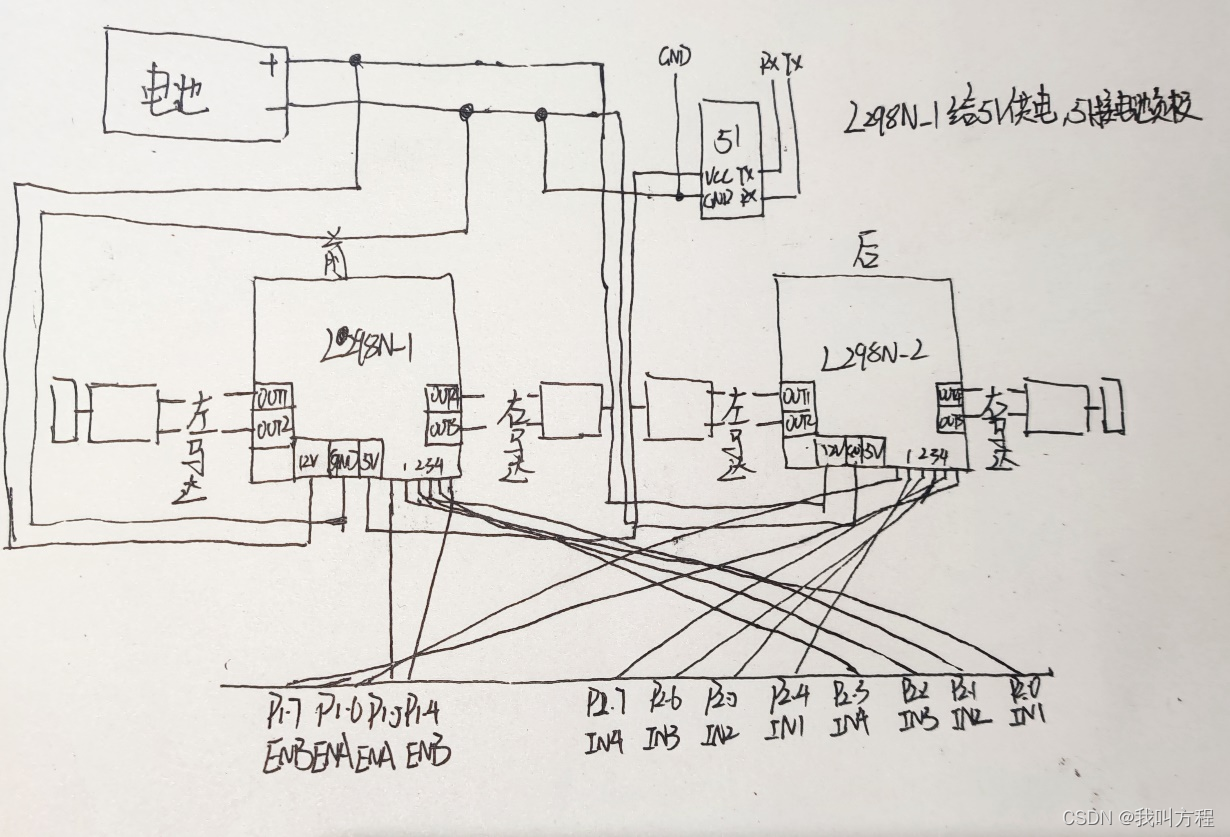 电池
+
−
GND
RX TX
51
VCC TX
GND RX
L298N-1给51供电,51接电池负极
前
L298N-1
OUT1
OUT2
OUT4
OUT3
左马达
右马达
12V GND 5V
1 2 3 4
后
L298N-2
OUT1
OUT2
OUT4
OUT3
左马达
右马达
12V GND 5V
1 2 3 4
P1.7 P1.6 P1.5 P1.4
ENB ENA ENA ENB
P2.7 P2.6 P2.5 P2.4 P2.3 P2.2 P2.1 P2.0
IN4 IN3 IN2 IN1 IN4 IN3 IN2 IN1
CSDN @我叫方程